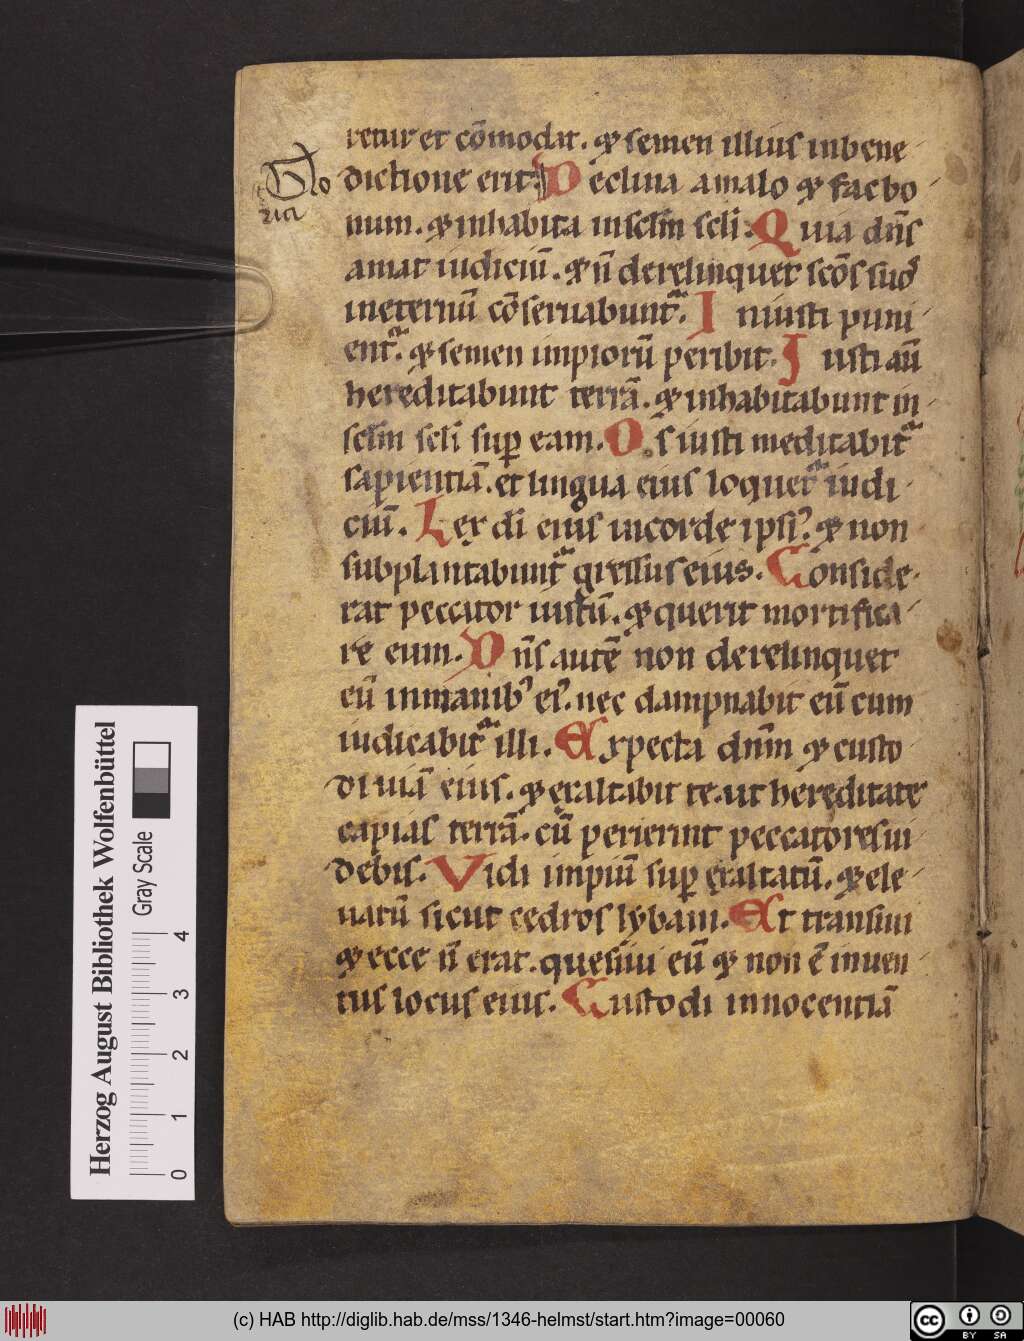 retur et cōmodat. ⁊ semen illius in bene
dictione erit. Declina a malo ⁊ fac bo
num. ⁊ inhabita in sclm scli. Quia dn̄s
amat iudiciū. ⁊ n̄ derelinquet scōs suos
in eternū cōseruabunt᷑. Iniusti puni
ent᷑. ⁊ semen impiorū peribit. Iusti aū
hereditabunt terrā. ⁊ inhabitabunt in
sclm scli suꝑ eam. Os iusti meditabit᷑
sapientiā. et lingua eius loquet᷑ iudi
ciū. Lex di eius in corde ipsi⁹. ⁊ non
subplantabunt᷑ gressus eius. Conside
rat peccator iustū. ⁊ querit mortifica
re eum. Dn̄s autē non derelinquet
eū in manib⁹ ei⁹. nec dampnabit eū cum
iudicabit᷑ illi. Expecta dnm̄ ⁊ custo
di uiā eius. ⁊ exaltabit te. ut hereditate
capias terrā. cū perierint peccatores ui
debis. Vidi impiū suꝑ exaltatū. ⁊ ele
uatū sicut cedros lybani. Et transiui
⁊ ecce n̄ erat. quesiui eū ⁊ non ē inuen
tus locus eius. Custodi innocentiā
Glo
Herzog August Bibliothek Wolfenbüttel
Gray Scale
0 1 2 3 4
(c) HAB http://diglib.hab.de/mss/1346-helmst/start.htm?image=00060
cc BY SA